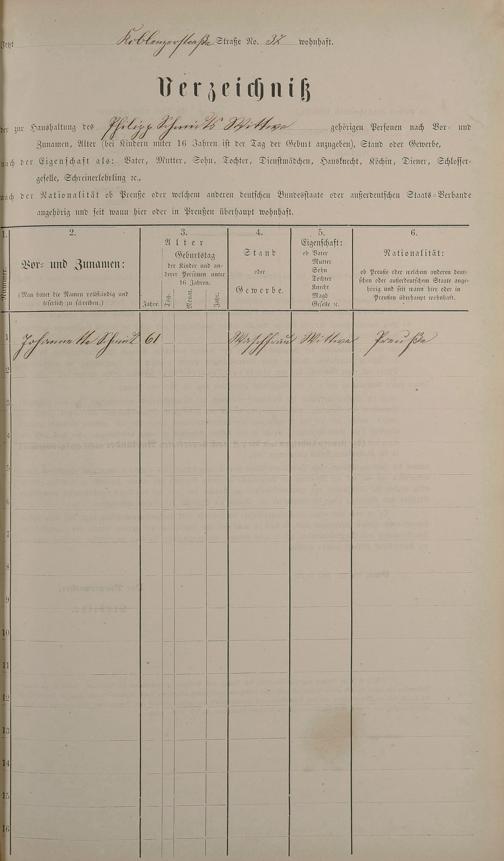 Jetzt Koblenzerstraße Straße No. 32 wohnhaft.
Verzeichniß
der zur Haushaltung des Philipp Schmidts Wittwe gehörigen Personen nach Vor- und
Zunamen, Alter (bei Kindern unter 16 Jahren ist der Tag der Geburt anzugeben), Stand oder Gewerbe,
nach der Eigenschaft als: Vater, Mutter, Sohn, Tochter, Dienstmädchen, Hausknecht, Köchin, Diener, Schlosser-
geselle, Schreinerlehrling ꝛc.,
nach der Nationalität ob Preuße oder welchem anderen deutschen Bundesstaate oder außerdeutschen Staats-Verbande
angehörig und seit wann hier oder in Preußen überhaupt wohnhaft.
1. 2. 3. 4. 5. 6.
Nummer.
Vor- und Zunamen:
(Man bittet die Namen vollständig und
leserlich zu schreiben.)
Alter
Geburtstag
der Kinder und an-
derer Personen unter
16 Jahren.
Jahre. Tag. Monat. Jahr.
Stand
oder
Gewerbe.
Eigenschaft:
ob Vater
Mutter
Sohn
Tochter
Knecht
Magd
Geselle ꝛc.
Nationalität:
ob Preuße oder welchem anderen deut-
schen oder außerdeutschen Staate ange-
hörig und seit wann hier oder in
Preußen überhaupt wohnhaft.
1 Johannette Schmidt 61 Waschfrau Wittwe Preuße
2
3
4
5
6
7
8
9
10
11
12
13
14
15
16